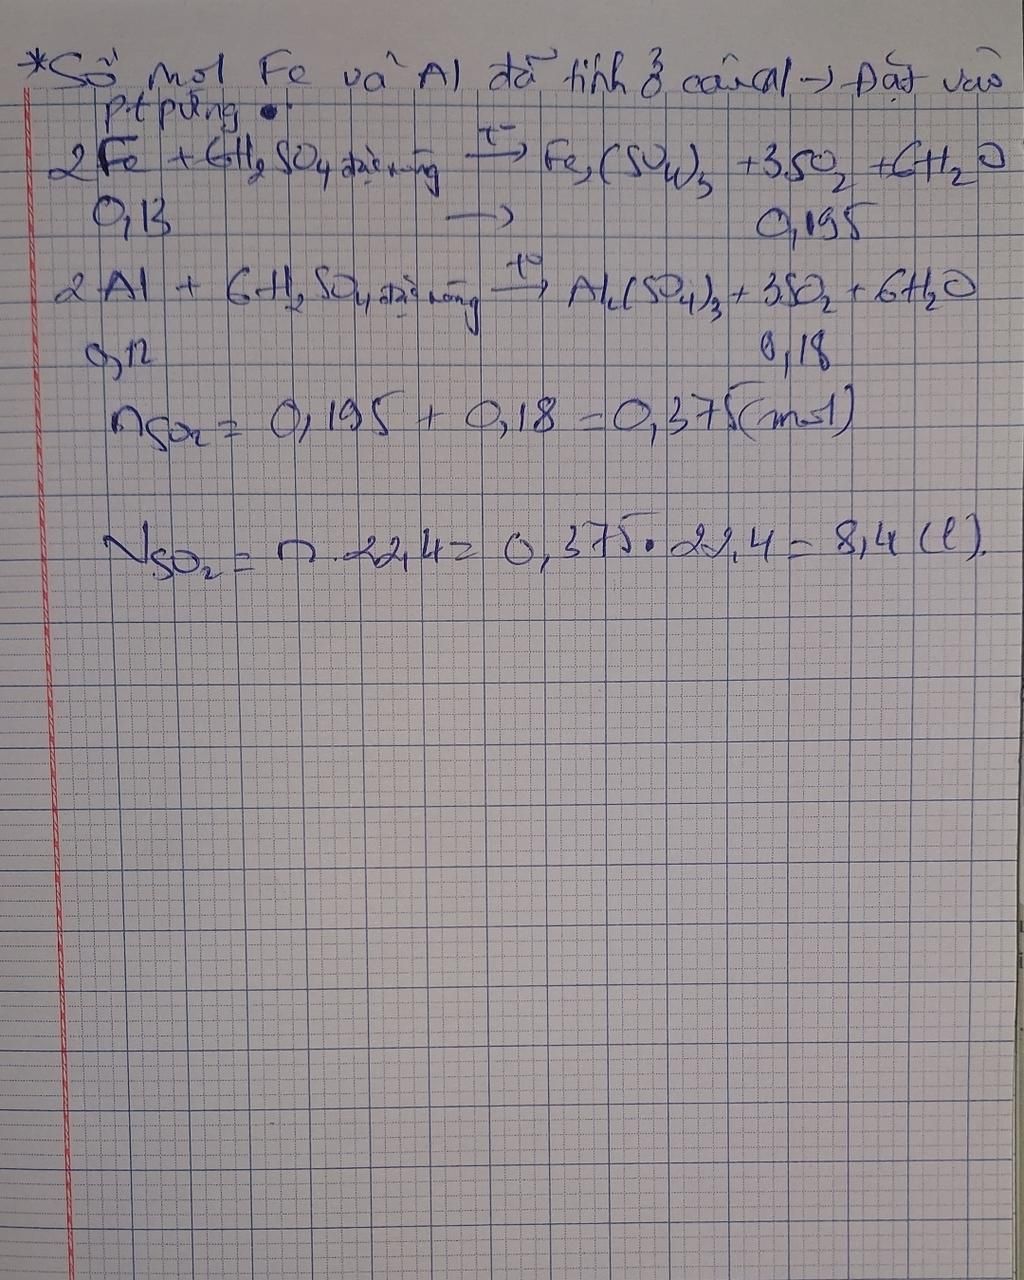 *Số mol Fe và Al đã tính ở câu a) → Đặt vào
pt pứng
2Fe + 6H₂SO₄ đặc nóng —t°→ Fe₂(SO₄)₃ + 3SO₂ + 6H₂O
0,13 → 0,195
2Al + 6H₂SO₄ đặc nóng —t°→ Al₂(SO₄)₃ + 3SO₂ + 6H₂O
0,12 0,18
nSO₂ = 0,195 + 0,18 = 0,375 (mol)
VSO₂ = n . 22,4 = 0,375 . 22,4 = 8,4 (l).